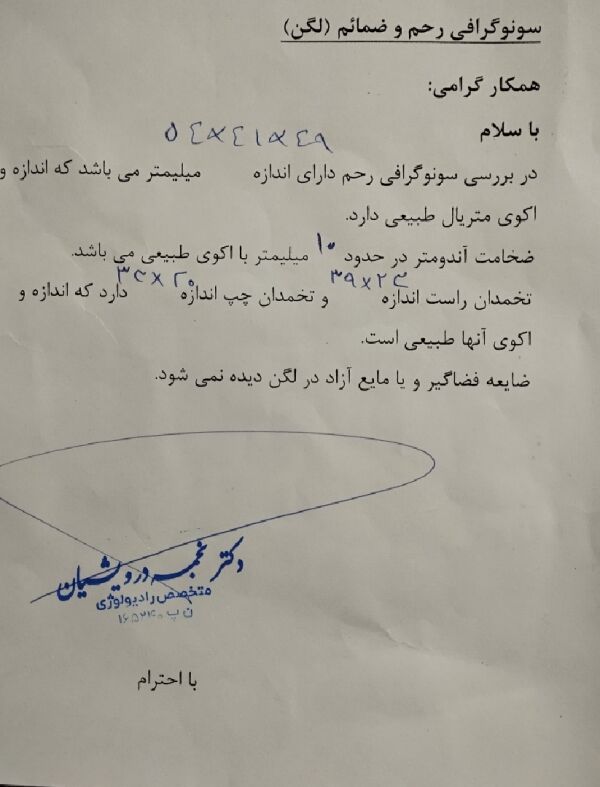 سونوگرافی رحم و ضمائم (لگن)
همکار گرامی:
با سلام
در بررسی سونوگرافی رحم دارای اندازه ۵۴×۴۱×۴۹ میلیمتر می باشد که اندازه و
اکوی متریال طبیعی دارد.
ضخامت آندومتر در حدود ۱۰ میلیمتر با اکوی طبیعی می باشد.
تخمدان راست اندازه ۳۹×۲۴ و تخمدان چپ اندازه ۳۴×۲۰ دارد که اندازه و
اکوی آنها طبیعی است.
ضایعه فضاگیر و یا مایع آزاد در لگن دیده نمی شود.
دکتر نجمه درویشیان
متخصص رادیولوژی
ن پ ۱۶۵۲۴۰
با احترام